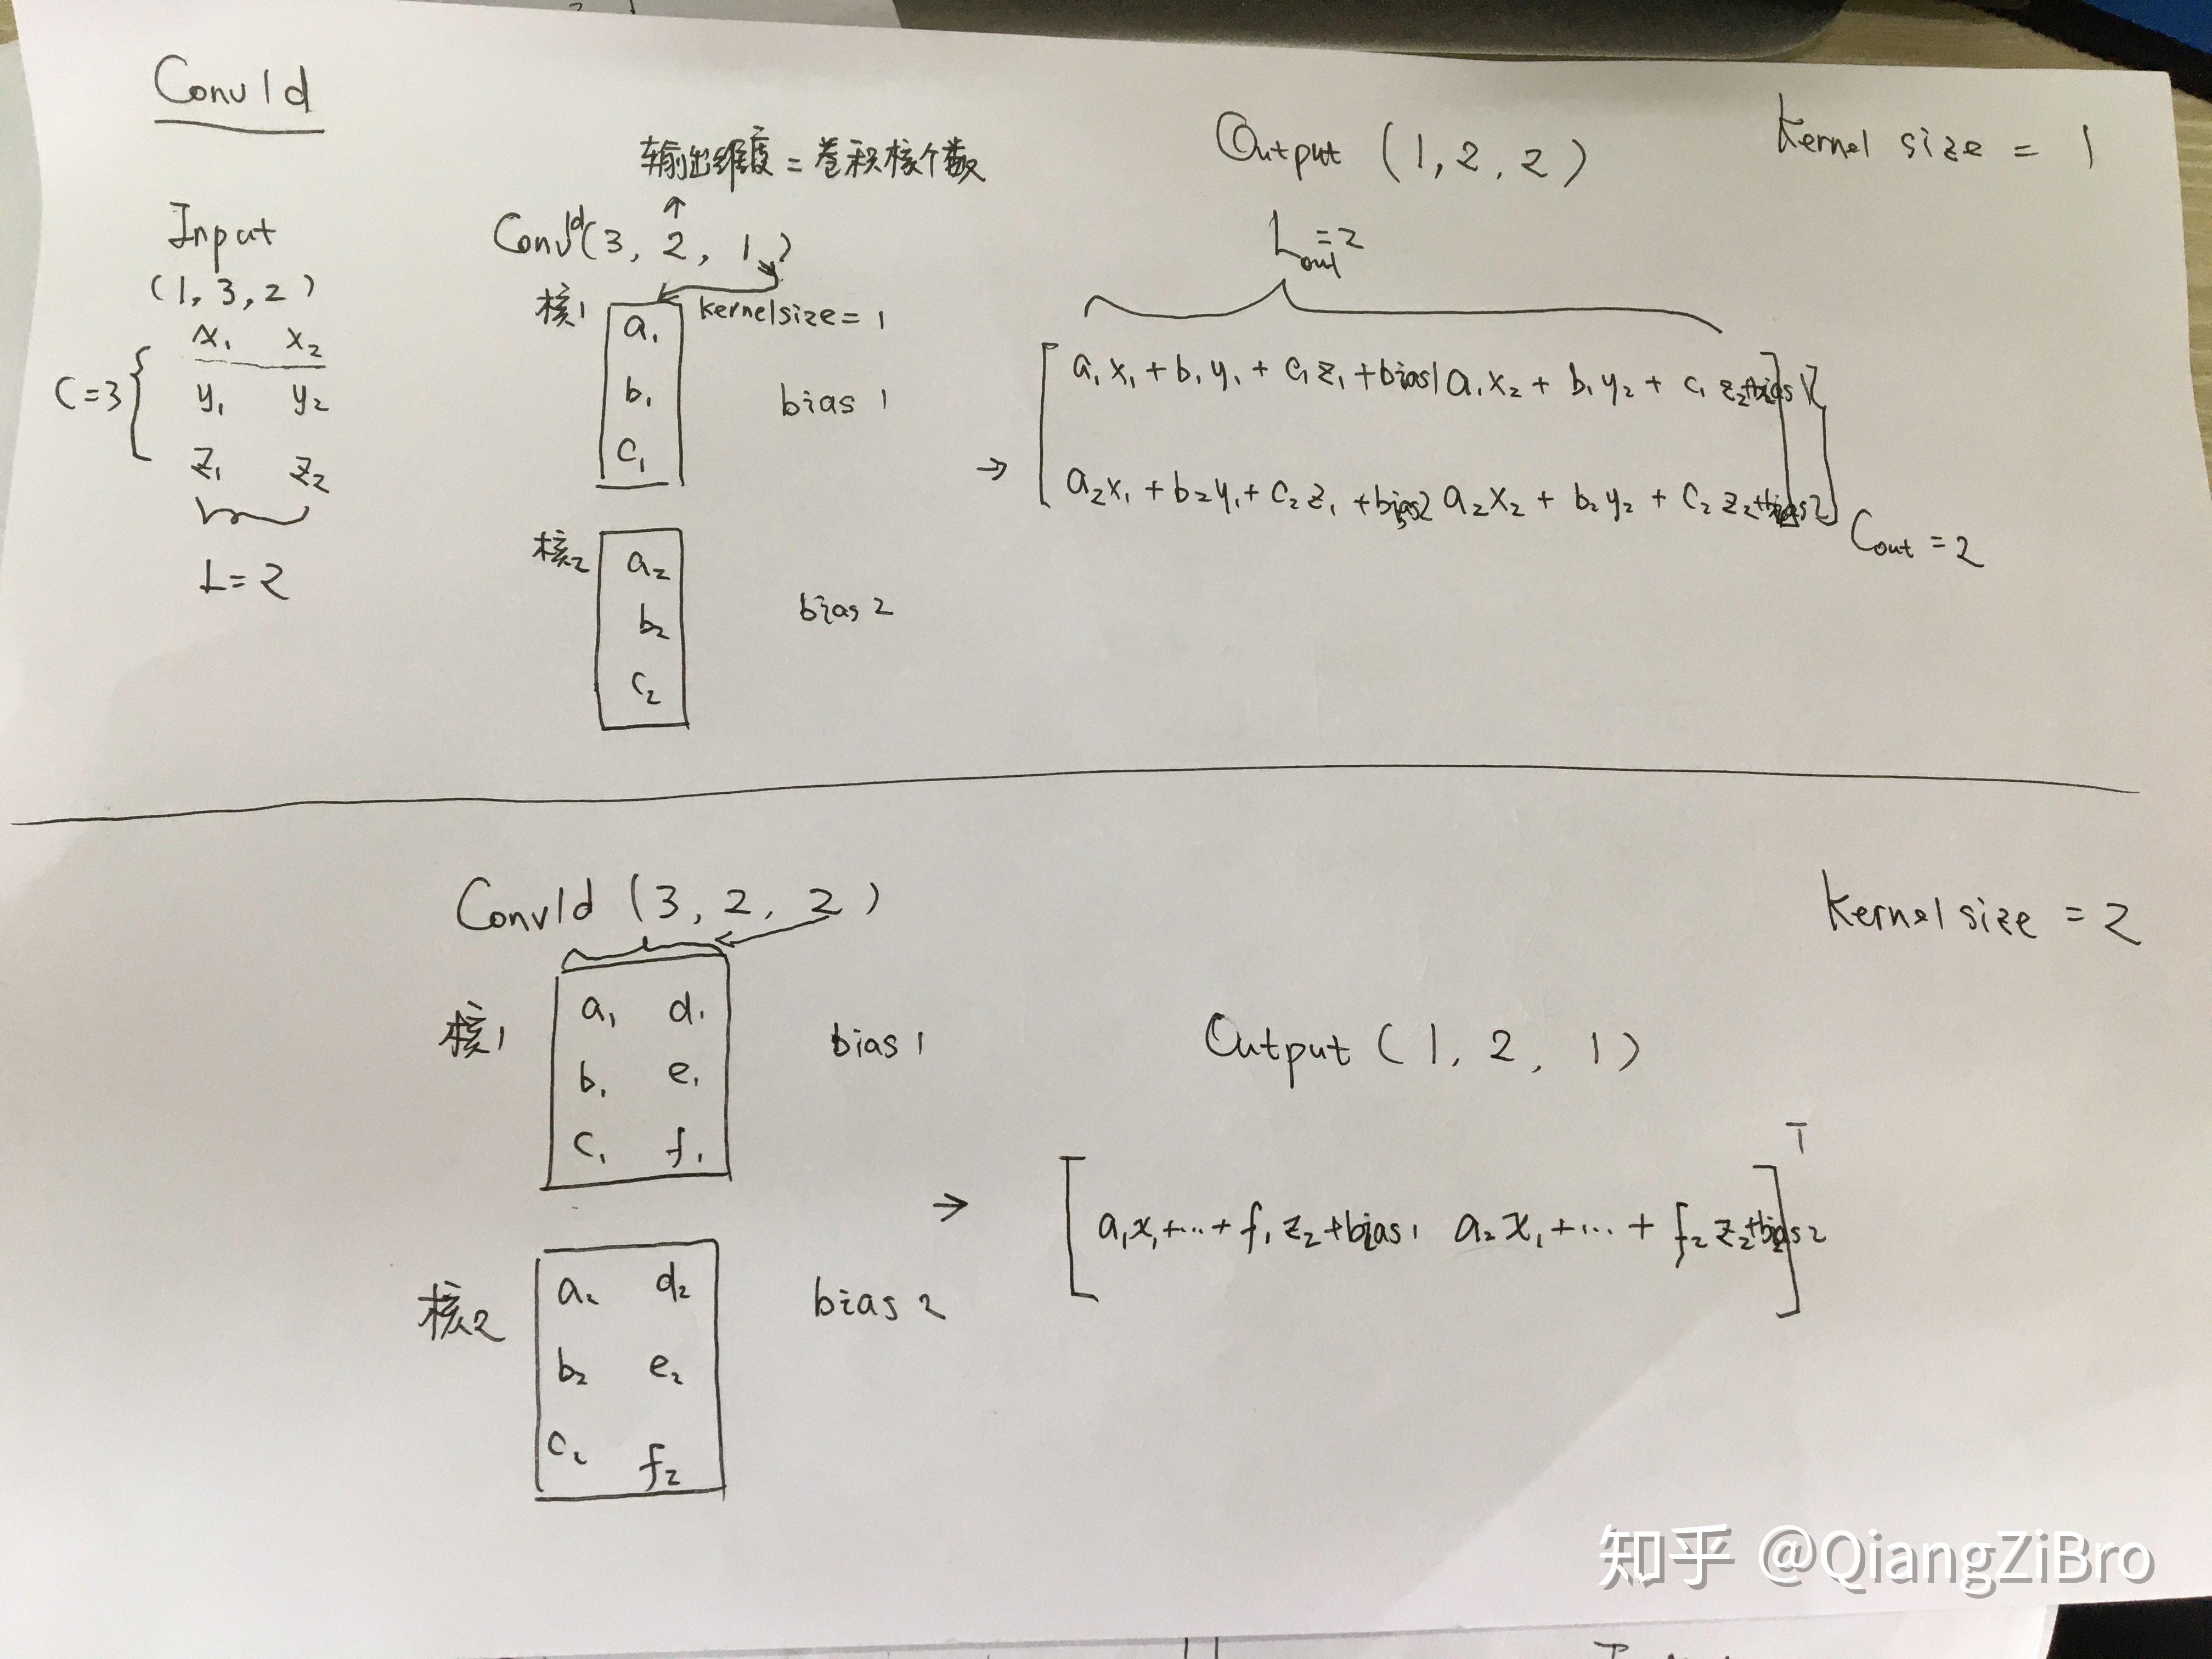 Conv1d
输出维度=卷积核个数
Output (1, 2, 2)
Kernel size = 1
Input
(1, 3, 2)
Conv1d(3, 2, 1)
L out = 2
核1
kernelsize = 1
x₁ x₂
y₁ y₂
z₁ z₂
C=3
L=2
a₁
b₁
c₁
bias 1
核2
a₂
b₂
c₂
bias 2
→
a₁x₁ + b₁y₁ + c₁z₁ + bias1 a₁x₂ + b₁y₂ + c₁z₂ + bias1
a₂x₁ + b₂y₁ + c₂z₁ + bias2 a₂x₂ + b₂y₂ + c₂z₂ + bias2
Cout = 2
Conv1d (3, 2, 2)
Kernel size = 2
核1
a₁ d₁
b₁ e₁
c₁ f₁
bias 1
Output (1, 2, 1)
核2
a₂ d₂
b₂ e₂
c₂ f₂
bias 2
→
[a₁x₁+...+ f₁z₂+bias1 a₂x₁+...+ f₂z₂+bias2]ᵀ
知乎 @QiangZiBro